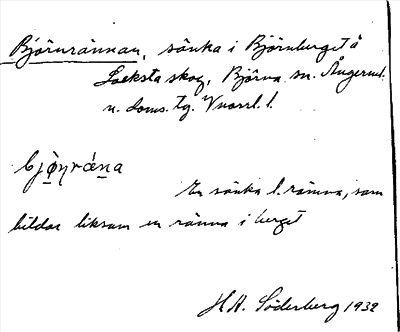 Björnrännan, sänka i Björnberget å
Locksta skog, Björna sn. Ångerml.
n. doms. tg. Vnorrl. l.
bjọ̀ṇrána
En sänka l. ränna, som
bildar liksom en ränna i berget
H.A. Söderberg 1932